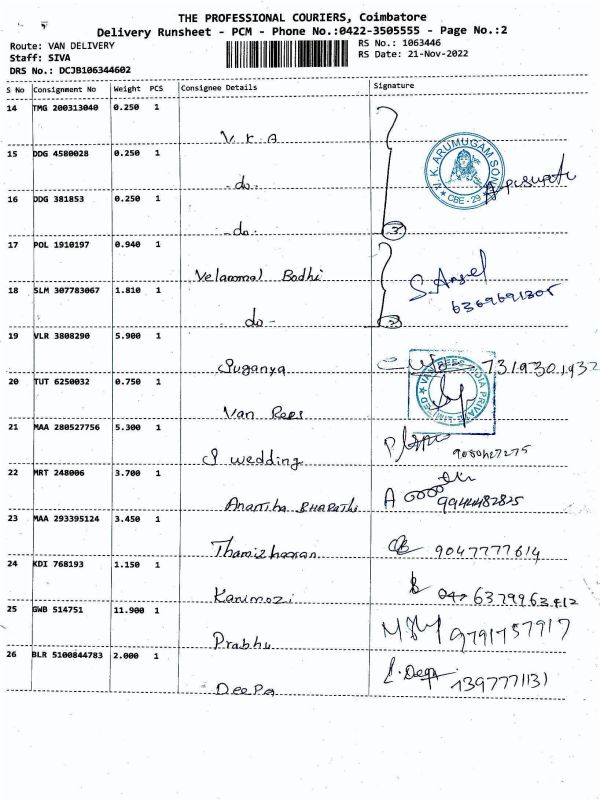 THE PROFESSIONAL COURIERS, Coimbatore
Delivery Runsheet - PCM - Phone No.:0422-3505555 - Page No.:2
Route: VAN DELIVERY
Staff: SIVA
DRS No.: DCJB106344602
RS No.: 1063446
RS Date: 21-Nov-2022
S No Consignment No Weight PCS Consignee Details Signature
14 TMG 200313040 0.250 1
V K A
15 DDG 4580028 0.250 1
-do-
V.K. ARUMUGAM SON
CBE - 29
16 DDG 381853 0.250 1
-do-
3
17 POL 1910197 0.940 1
Velammal Bodhi
18 SLM 307783067 1.810 1
6369691305
do -
2
19 VLR 3808290 5.900 1
Suganya
7319301932
20 TUT 6250032 0.750 1
Van Rees
21 MAA 280527756 5.300 1
S wedding
9080427275
22 MRT 248006 3.700 1
BHARATHI
9944482825
23 MAA 293395124 3.450 1
9047777614
24 KDI 768193 1.150 1
Kanimozi
25 GWB 514751 11.900 1
Prabhu
9791757917
26 BLR 5100844783 2.000 1
DeePa